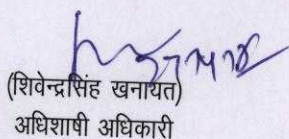 (शिवेन्द्रसिंह खनायत)
अधिशाषी अधिकारी